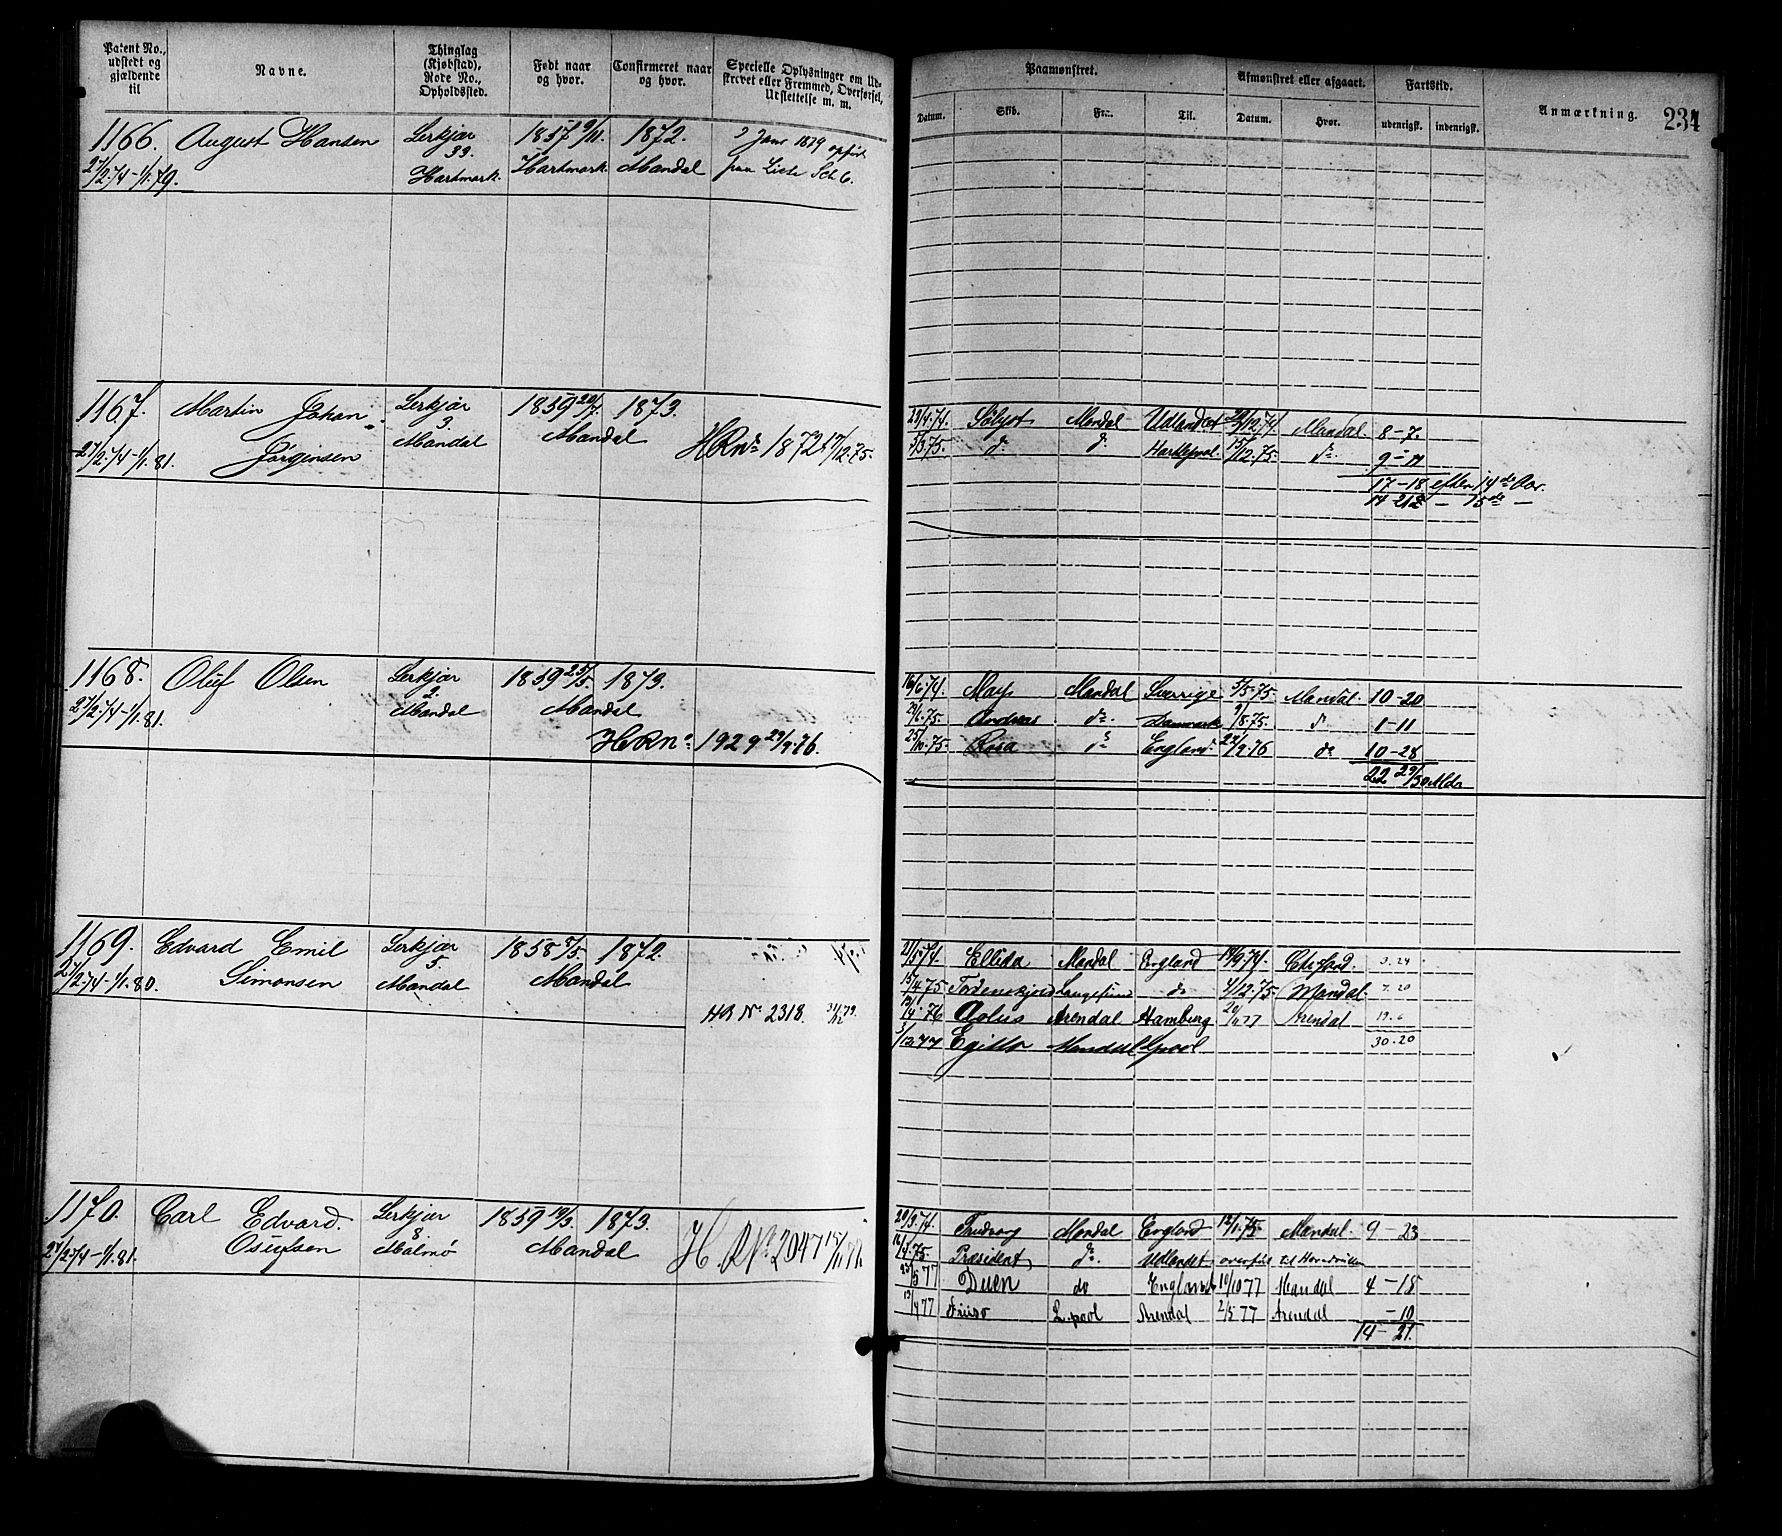 Patent No., udstedt og gjældende til
Navne.
Thinglag (Kjøbstad), Rode No., Opholdssted.
Født naar og hvor.
Confirmeret naar og hvor.
Specielle Oplysninger om Udskrevet eller Fremmed, Overførsel, Udslettelse m. m.
Paamønstret.
Datum. Skib. Fra. Til.
Afmønstret eller afgaaet.
Datum. Hvor.
Fartstid.
udenrigsk. indenrigsk.
Anmærkning.
234
1166. August Hansen Lerkjær 1857 9/11. 1872. Janr 1879 opført
33.
27/2.74-1/1.79. Hartmark. Hartmark. Mandal paa Liste Sch 6.
1167. Martin Johan Lerkjær 1859 20/7. 1873.
3.
27/2.74-1/1.81. Jørgensen Mandal Mandal HRNo 1872 17/12.75.
23/4.74. Sølyst Mandal Udlandet 24/12.74 Mandal. 8-7.
5/3.75. do do Hartlepool 15/12.75. do 9-11
17-18 efter 14de Aar.
15de
1168. Oluf Olsen Lerkjær 1859 25/5. 1873.
2.
27/2.74-1/1.81. Mandal Mandal
HRNo 1929 29/2.76.
16/6.74. Mandal Sverrige 5/5.75 Mandal 10-20
Andreas do Danmark 9/8.75. do 1-11
25/10.75. Rosa do England 22/2.76 do 10-28
22 29/30 Mdr
1169. Edvard Emil Lerkjær 1858 8/5. 1872.
5.
27/2.74-1/1.80. Simonsen Mandal Mandal
HR No 2318. 79.
21/5.74. Ellida Mandal England 14/9.74. 3.24
15/4.75 Tordenskjold Langesund do 4/12.75. Mandal. 7.20
76 Aolus Arendal Hamburg 77 Arendal 19.6
3/12.77 Mandal Lpool 30.20
1170. Carl Edvard. Lerkjær 1859 19/3. 1873.
8
27/2.74-1/1.81. Osufsen Malmø Mandal H RNo 2047
20/3.74. Mandal England 12/1.75 Mandal. 9-23
16/4.75. Præsident do. Udlandet overført til
23/5 77 Duen do England 10/10 77 Mandal 4-18
13/4 77 L.pool Arendal 2/5 77 Arendal -10
14-21.